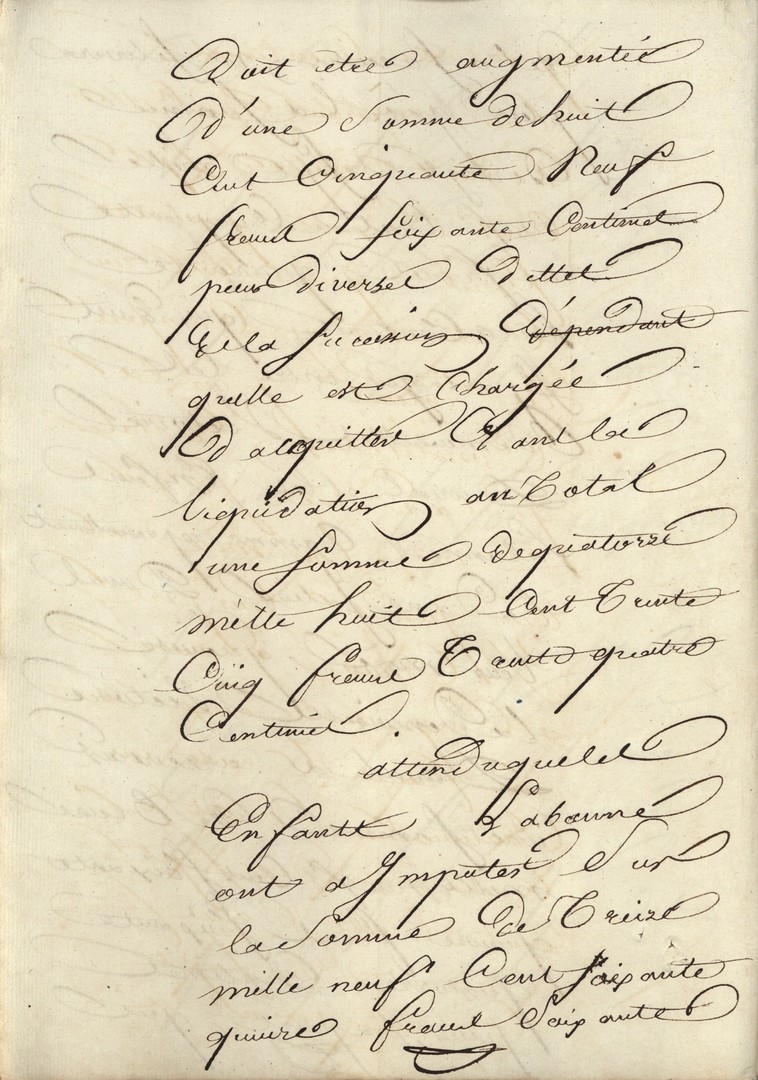 Doit etre augmentée
D'une Somme de huit
Cent Cinquante Neuf
francs soixante Centimes
pour diverses dettes
De la succession dépendant
qu'elle est Chargée
D'acquitter Et ont la
liquidation au Total
une somme de quatorze
mille huit Cent Trente
Cinq francs Trente quatre
Centimes.
attendu que les
Enfants Labonne
ont a Imputer Sur
la Somme de Treize
mille neuf Cent soixante
quinze francs Soixante